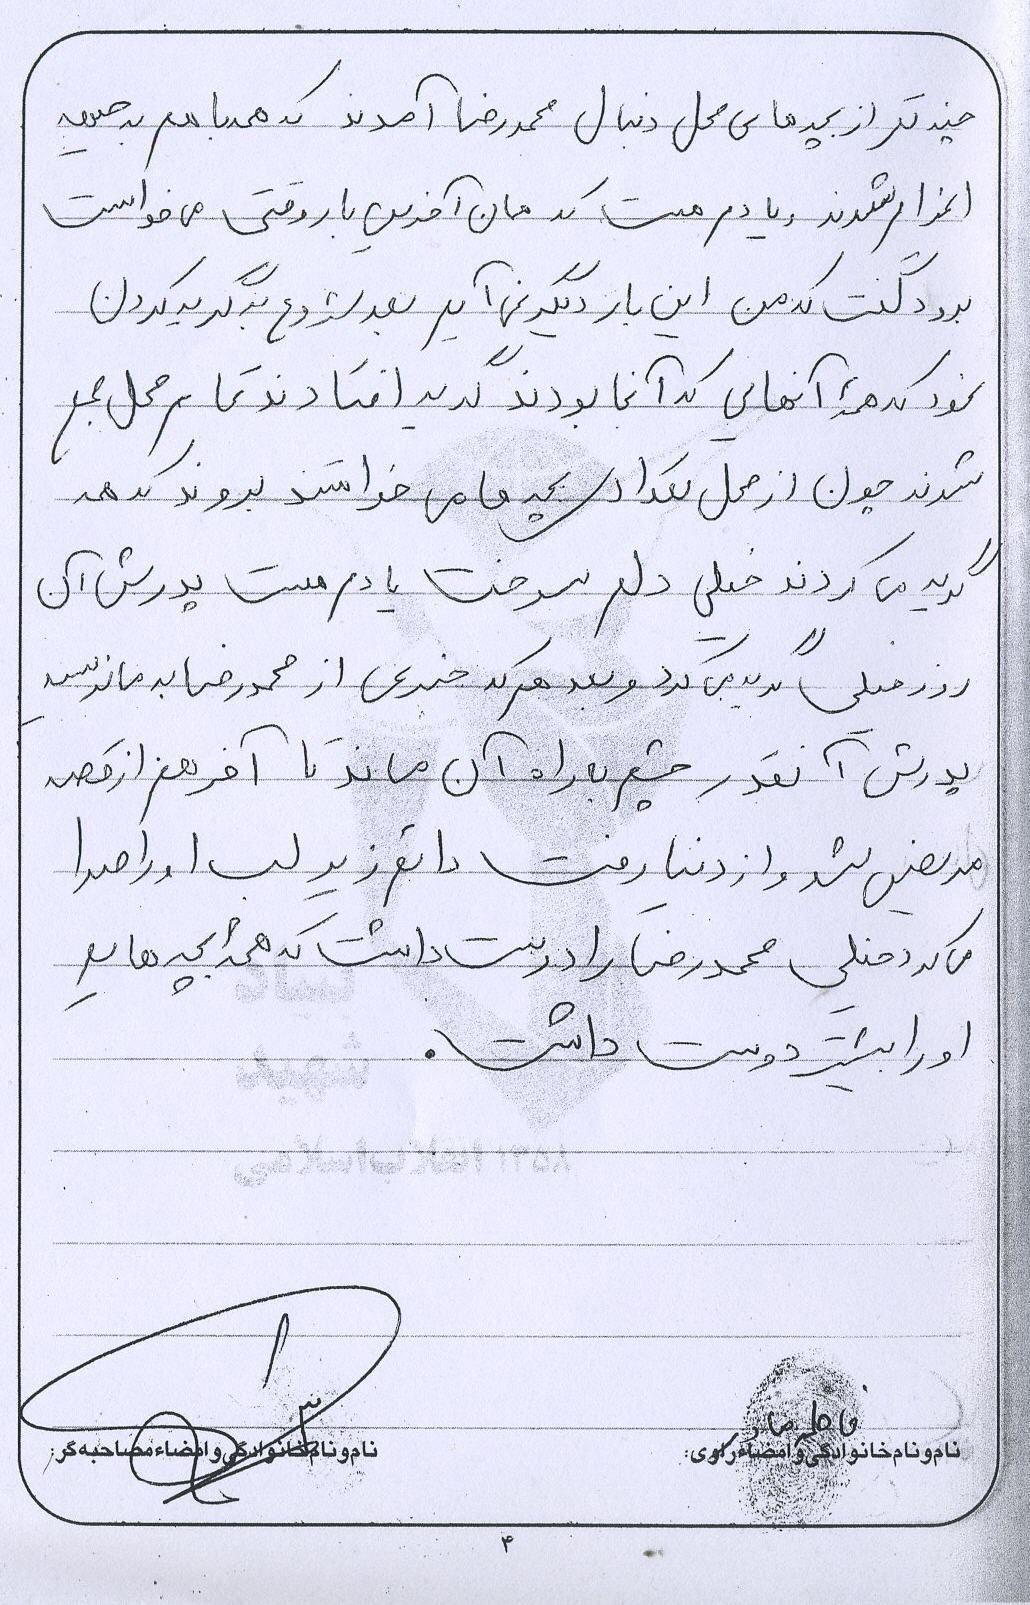 چند نفر از بچه های محل دنبال محمدرضا آمدند که همه با هم به جبهه
اعزام شدند و یادم هست که همان آخرین بار وقتی می خواست
برود گفت که من این بار دیگر نمی آیم بعد شروع به گریه کردن
نمود که همهٔ آنهایی که آنجا بودند گریه افتادند تمام محل جمع
شدند چون از محل تعدادی بچه ها می خواستند بروند که همه
گریه می کردند خیلی دلم سوخت یادم هست پدرش آن
روز خیلی گریه می کرد و بعد هم که خبری از محمدرضا به ما نرسید
پدرش آنقدر چشم براه آن ماند تا آخر هم از غصه
مریض شد و از دنیا رفت دائم زیر لب او را صدا
می کرد خیلی محمدرضا را دوست داشت که همهٔ بچه هایم
او را بیشتر دوست داشت.
نام و نام خانوادگی و امضاء راوی:
نام و نام خانوادگی و امضاء مصاحبه گر:
۴